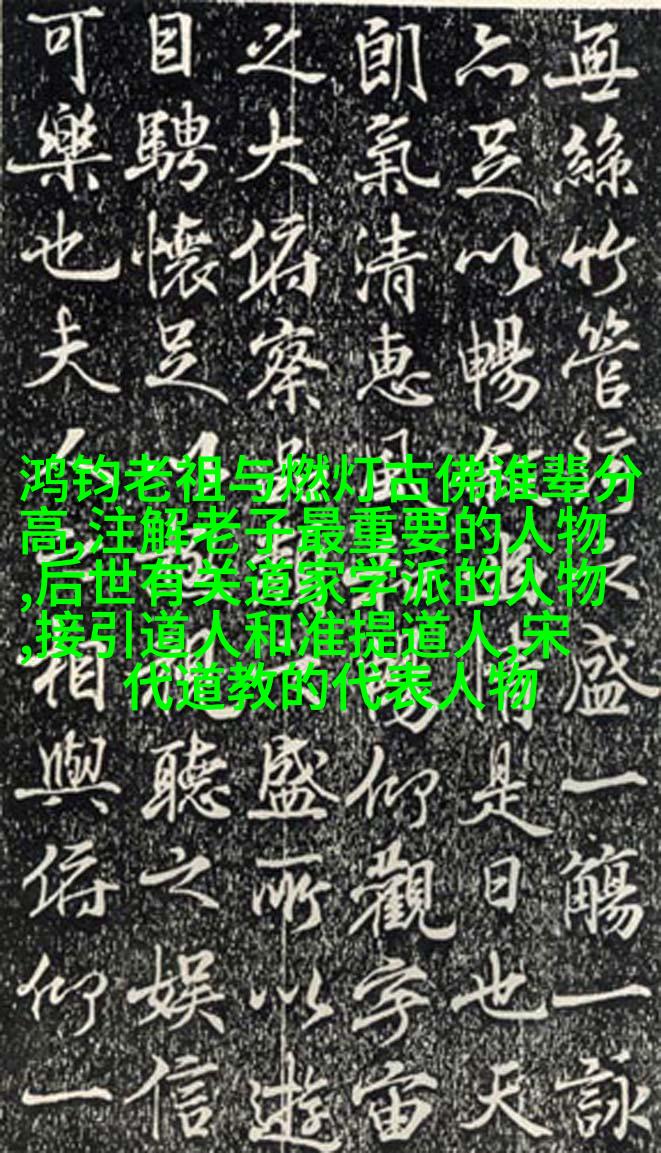 鸿钧老祖与燃灯古佛谁辈分
高,注解老子最重要的人物
,后世有关道家学派的人物
,接引道人和准提道人,宋
代道教的代表人物
無絲竹管盛一觴一詠
亦足以暢情是日也天
朗氣清惠風暢仰觀宇宙
之大俯察盛所以遊
目騁懷足聽之娛信
可樂也夫相與俯仰一